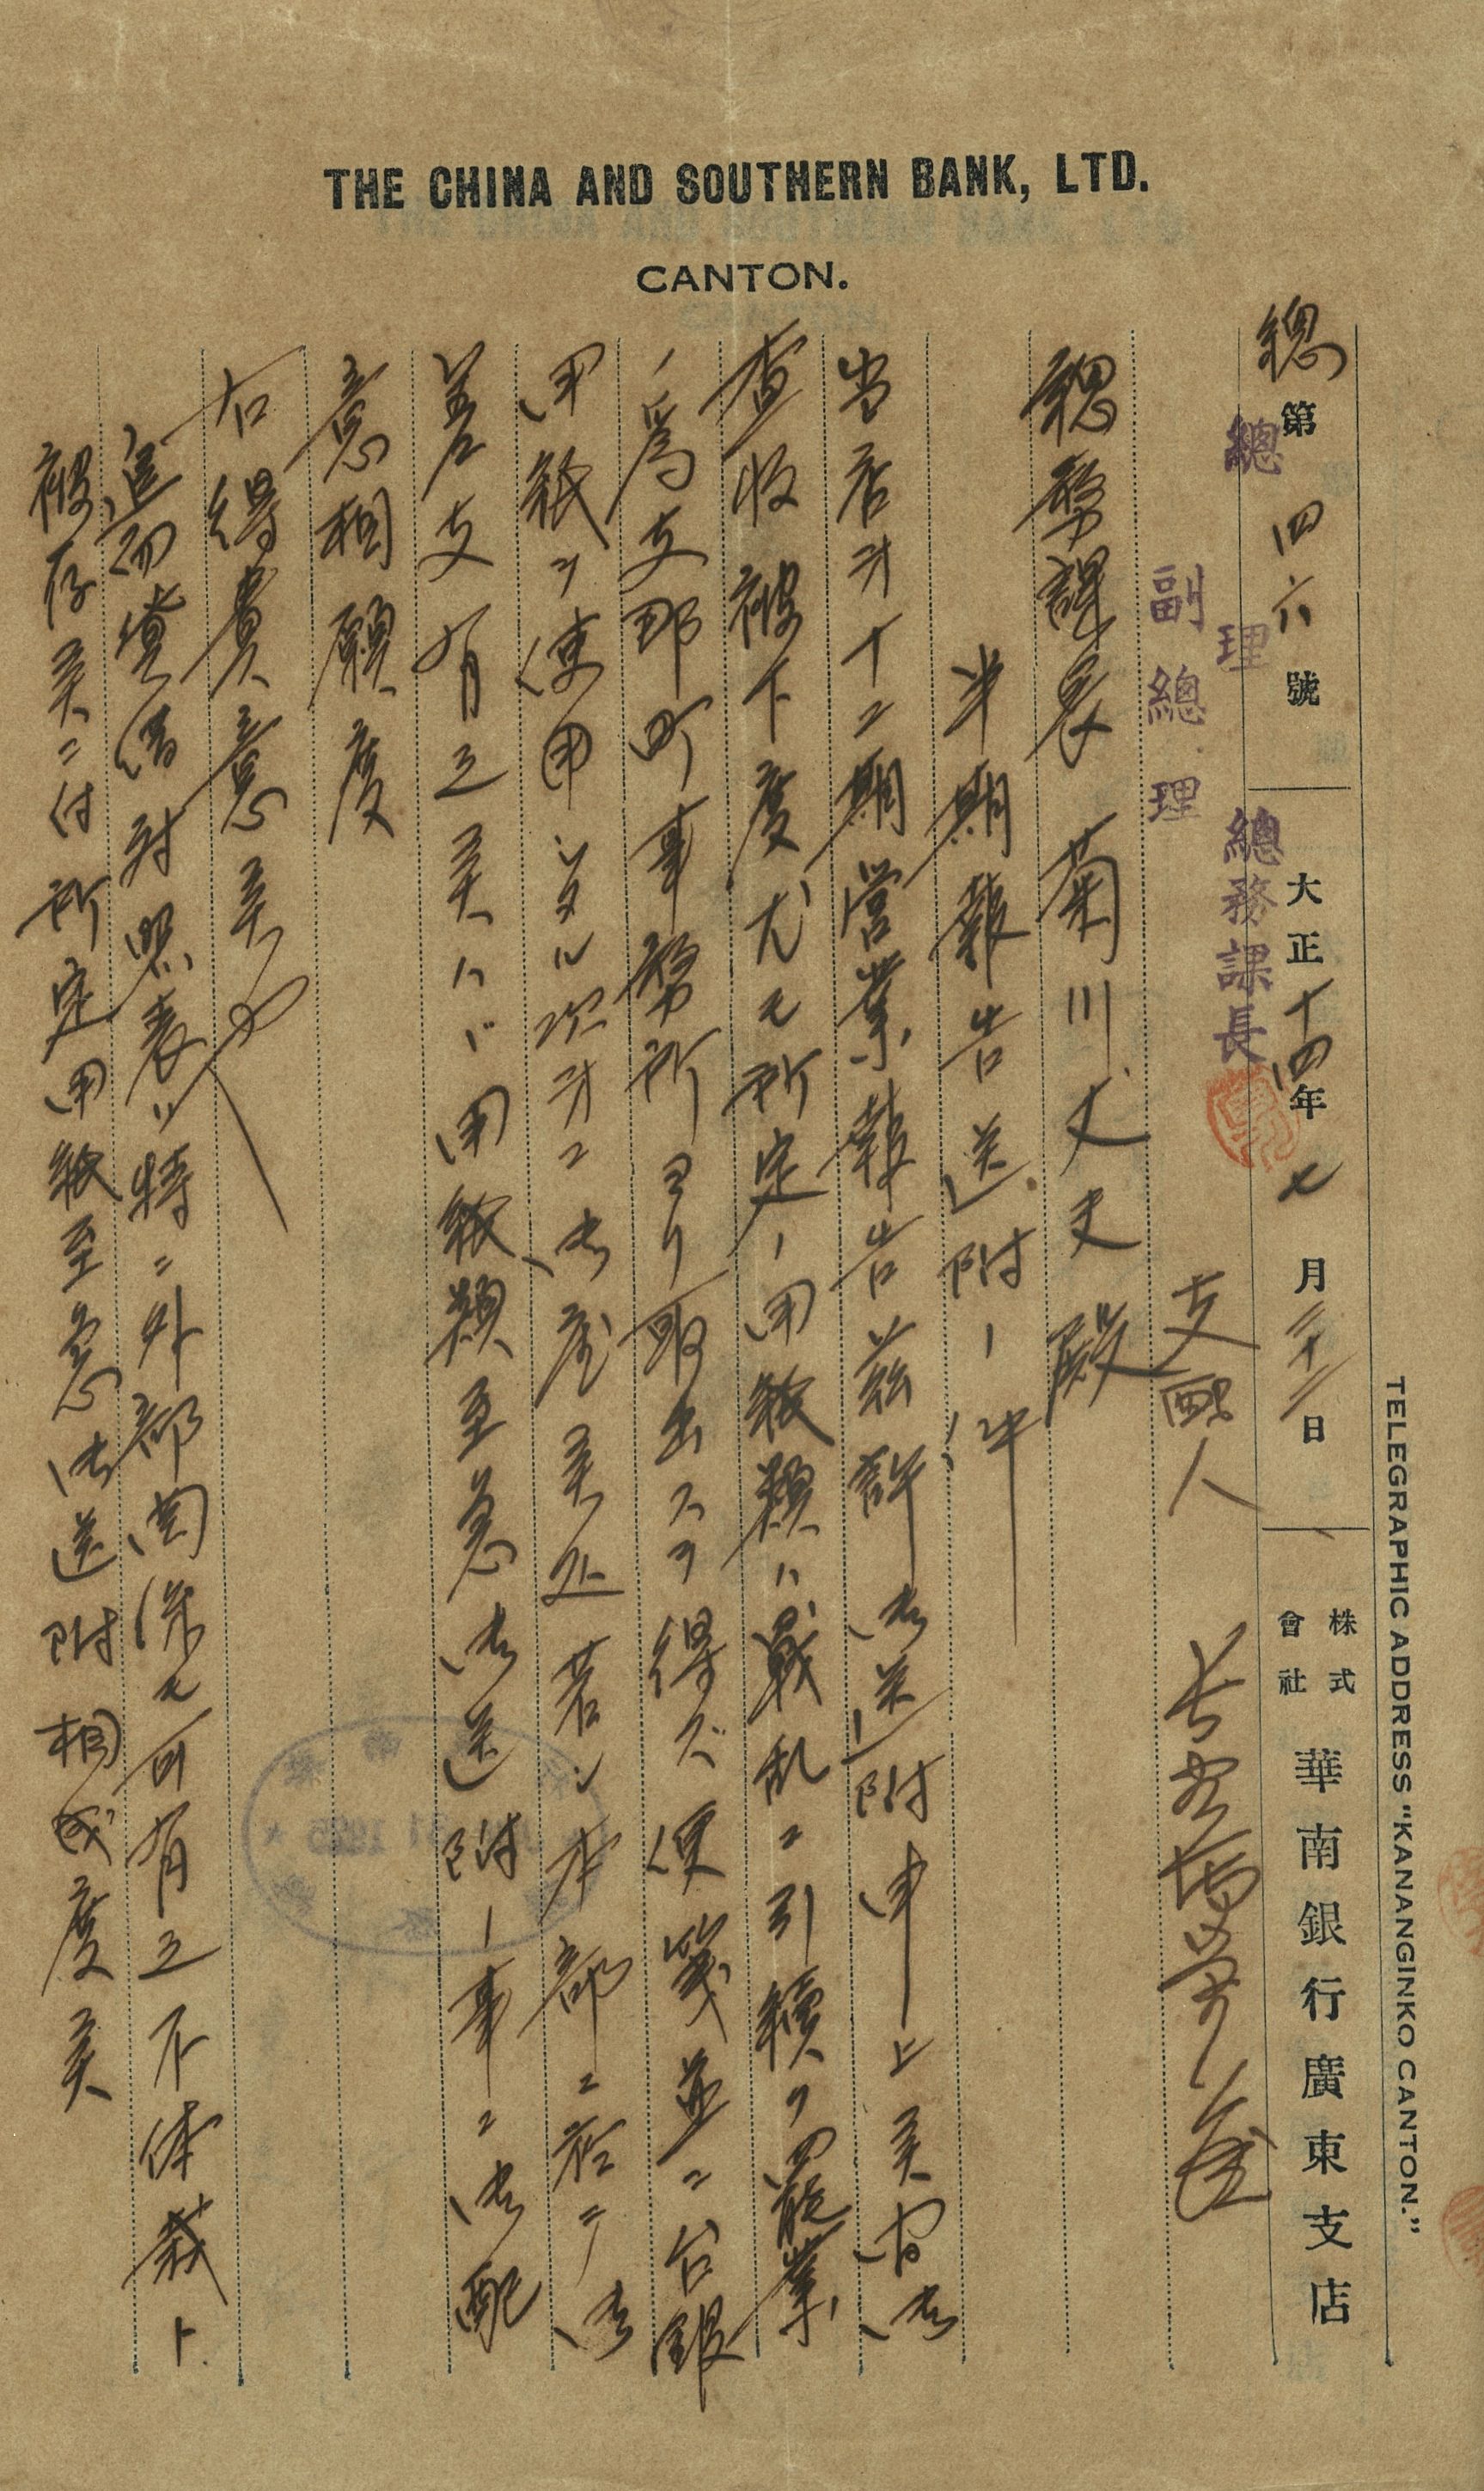 THE CHINA AND SOUTHERN BANK, LTD.
CANTON.
TELEGRAPHIC ADDRESS "KANANGINKO CANTON."
總第四六號 大正十四年七月二十二日 株式會社華南銀行廣東支店
總理 總務課長
副總理
支配人
總務課長 菊川丈夫殿
半期報告送附ノ件
当店第十二期営業報告茲許御送附申上候間御
査收被下度尤モ所定ノ用紙類ハ戰乱ニ引續ク罷業
ノ爲支那町事務所ヨリ取出スヲ得ズ便箋並ニ台銀
用紙ヲ使用シタル次第ニ御座候処若シ本部ニ於テ御
差支有之候ハバ用紙類至急御送附ノ事ニ御配
意相願度
右得貴意候也
追而貸借対照表ハ特ニ外部関係モ可有之不体裁ト
被存候ニ付所定用紙至急御送附相成度候